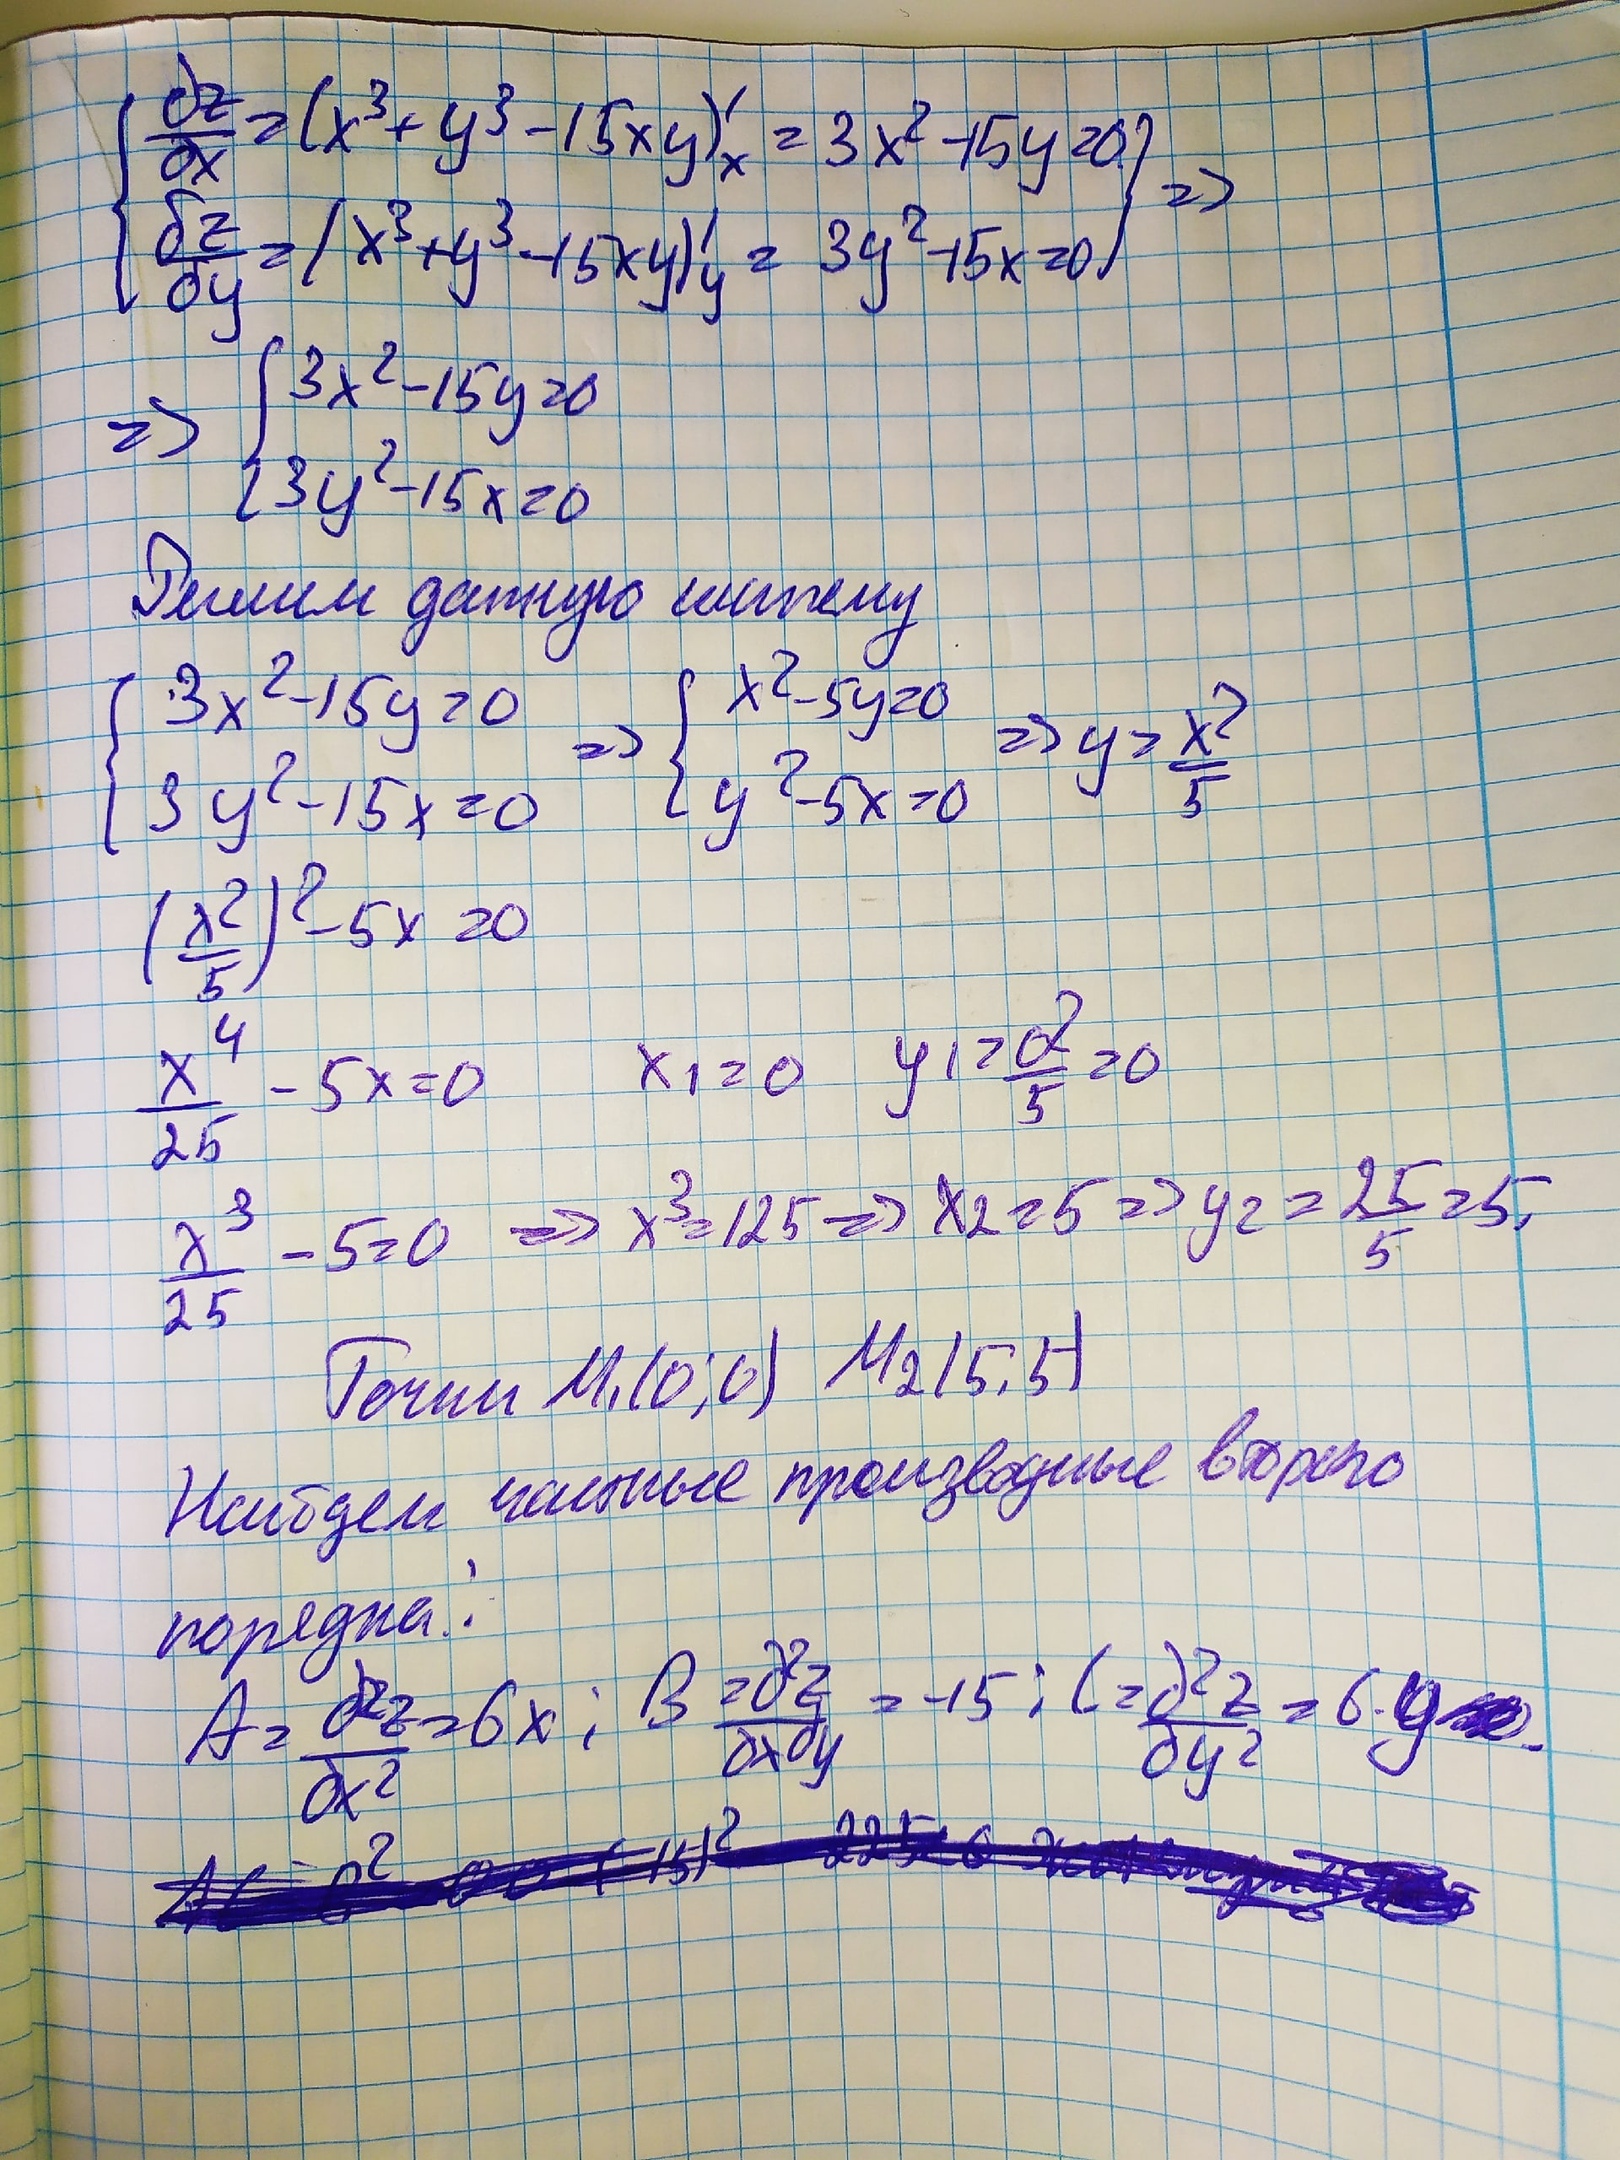 { ∂z/∂x = (x³ + y³ - 15xy)'x = 3x² - 15y = 0 } =>
{ δz/δy = (x³ + y³ - 15xy)'y = 3y² - 15x = 0 }
=> { 3x² - 15y = 0
{ 3y² - 15x = 0
Решим данную систему
{ 3x² - 15y = 0 => { x² - 5y = 0 => y = x²/5
{ 3y² - 15x = 0 { y² - 5x = 0
(x²/5)² - 5x = 0
x⁴/25 - 5x = 0 x₁ = 0 y₁ = 0²/5 = 0
x³/25 - 5 = 0 => x³ = 125 => x₂ = 5 => y₂ = 25/5 = 5;
Точки M₁(0;0) M₂(5;5)
Найдем частные производные второго
порядка:
A = ∂²z/∂x² = 6x; B = ∂²z/∂x∂y = -15; C = ∂²z/∂y² = 6·y